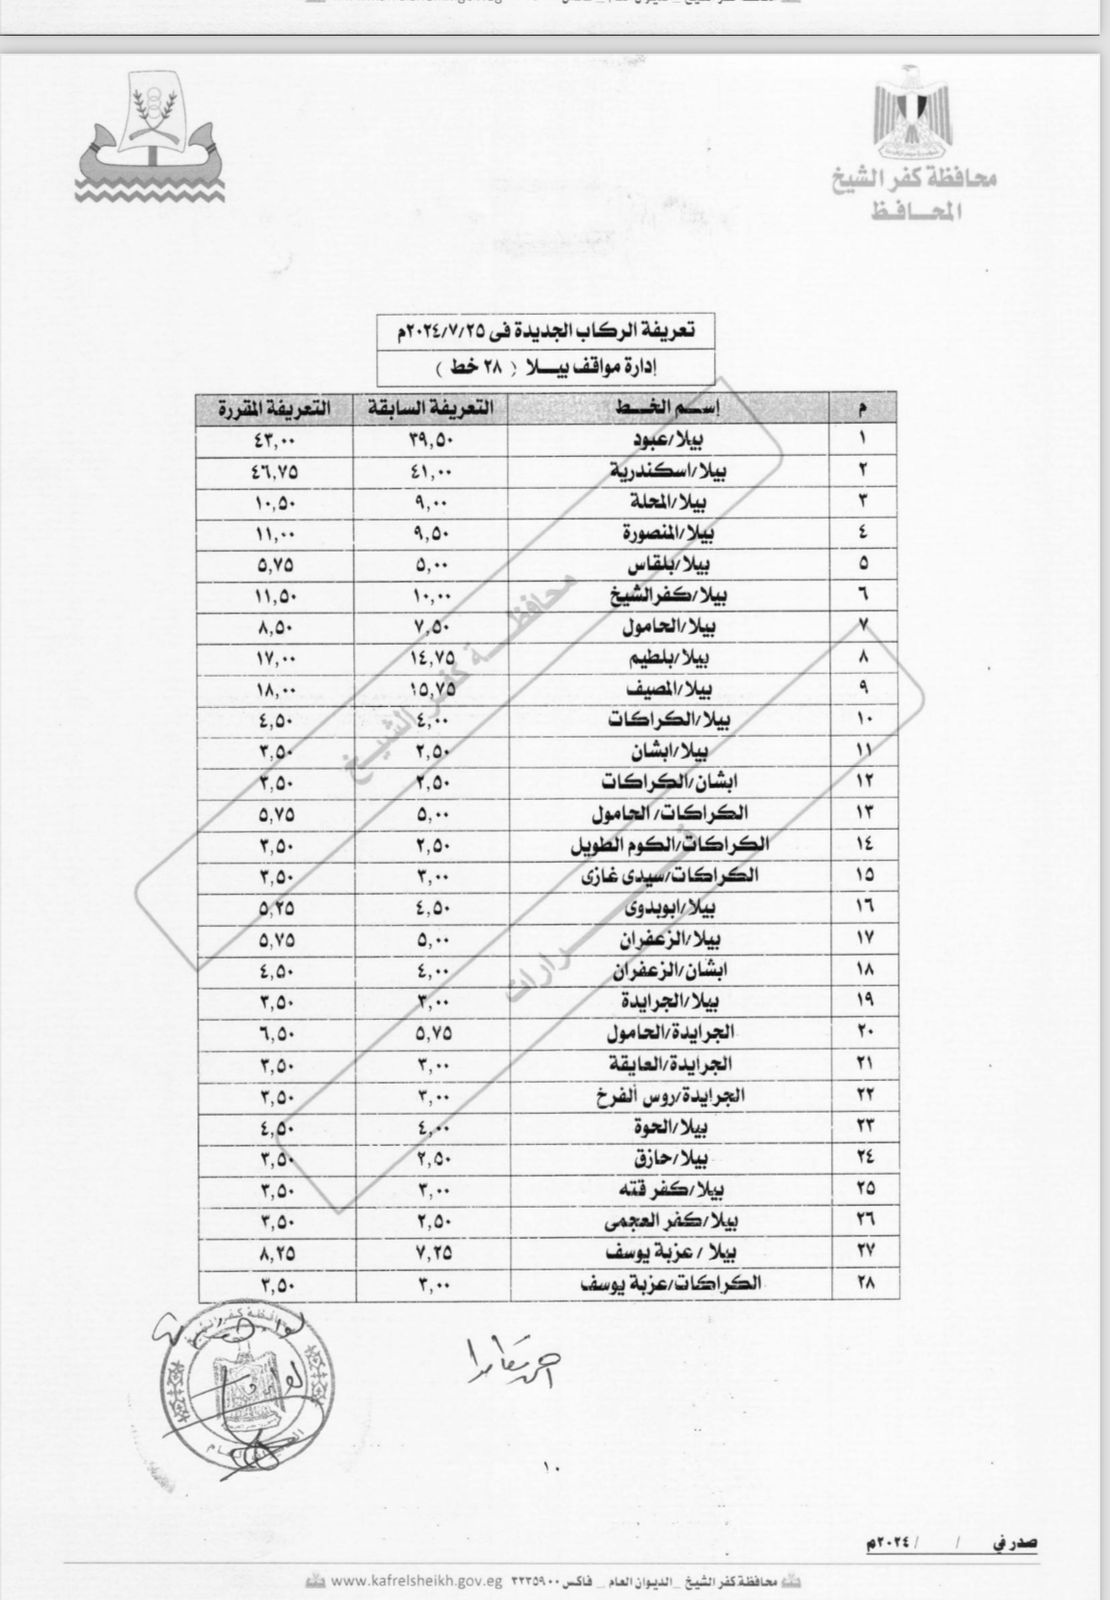 محافظة كفر الشيخ
المحافظ
تعريفة الركاب الجديدة فى ٢٠٢٤/٧/٢٥م
إدارة مواقف بيلا ( ٢٨ خط )
م إسم الخط التعريفة السابقة التعريفة المقررة
١ بيلا/عبود ٣٩,٥٠ ٤٣,٠٠
٢ بيلا/اسكندرية ٤١,٠٠ ٤٦,٧٥
٣ بيلا/المحلة ٩,٠٠ ١٠,٥٠
٤ بيلا/المنصورة ٩,٥٠ ١١,٠٠
٥ بيلا/بلقاس ٥,٠٠ ٥,٧٥
٦ بيلا/كفرالشيخ ١٠,٠٠ ١١,٥٠
٧ بيلا/الحامول ٧,٥٠ ٨,٥٠
٨ بيلا/بلطيم ١٤,٧٥ ١٧,٠٠
٩ بيلا/المصيف ١٥,٧٥ ١٨,٠٠
١٠ بيلا/الكراكات ٤,٠٠ ٤,٥٠
١١ بيلا/ابشان ٢,٥٠ ٣,٥٠
١٢ ابشان/الكراكات ٢,٥٠ ٣,٥٠
١٣ الكراكات/ الحامول ٥,٠٠ ٥,٧٥
١٤ الكراكات/الكوم الطويل ٢,٥٠ ٣,٥٠
١٥ الكراكات/سيدى غازى ٣,٠٠ ٣,٥٠
١٦ بيلا/ابوبدوى ٤,٥٠ ٥,٢٥
١٧ بيلا/الزعفران ٥,٠٠ ٥,٧٥
١٨ ابشان/الزعفران ٤,٠٠ ٤,٥٠
١٩ بيلا/الجرايدة ٣,٠٠ ٣,٥٠
٢٠ الجرايدة/الحامول ٥,٧٥ ٦,٥٠
٢١ الجرايدة/العايقة ٣,٠٠ ٣,٥٠
٢٢ الجرايدة/روس الفرخ ٣,٠٠ ٣,٥٠
٢٣ بيلا/الحوة ٤,٠٠ ٤,٥٠
٢٤ بيلا/حازق ٢,٥٠ ٣,٥٠
٢٥ بيلا/كفر قته ٣,٠٠ ٣,٥٠
٢٦ بيلا/كفر العجمى ٢,٥٠ ٣,٥٠
٢٧ بيلا / عزبة يوسف ٧,٢٥ ٨,٢٥
٢٨ الكراكات/عزبة يوسف ٣,٠٠ ٣,٥٠
محافظة كفر الشيخ
١٠
صدر في / / ٢٠٢٤م
محافظة كفر الشيخ _ الديوان العام _ فاكس ٣٢٣٥٩٠٠ www.kafrelsheikh.gov.eg